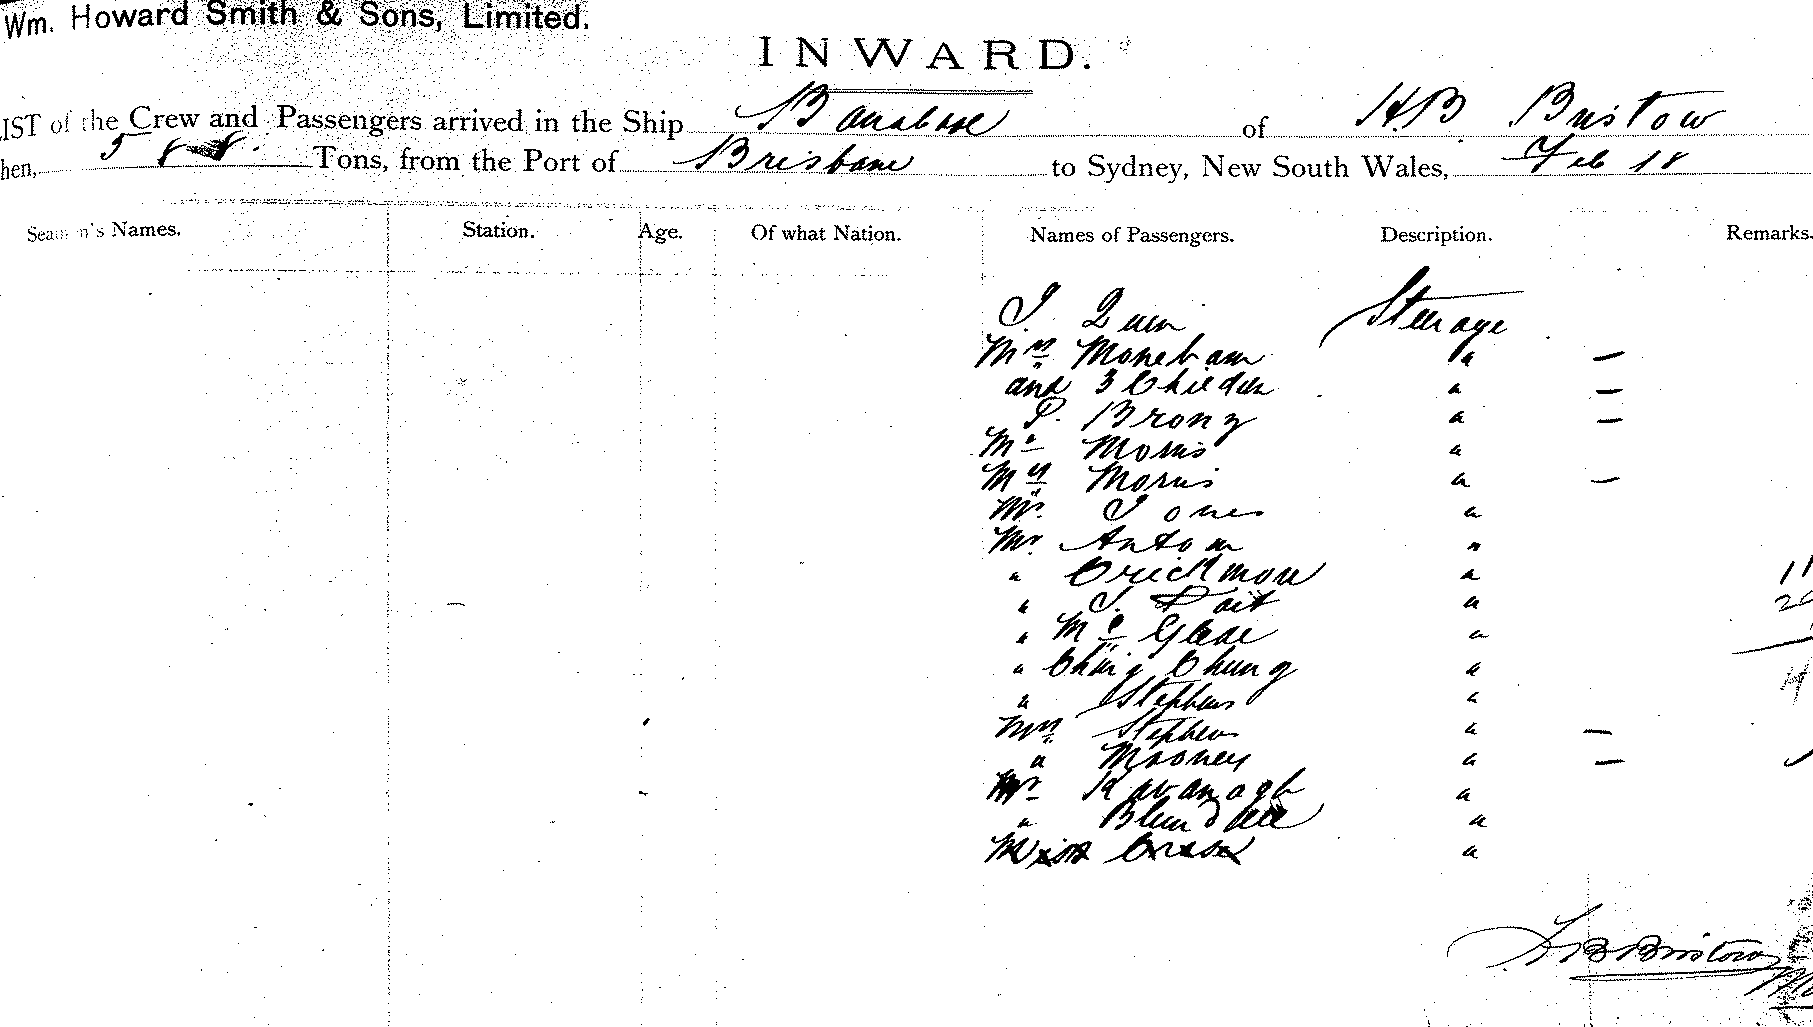 Wm. Howard Smith & Sons, Limited.
INWARD.
LIST of the Crew and Passengers arrived in the Ship Barrabool of H.B Bristow
hen, 5 Tons, from the Port of Brisbane to Sydney, New South Wales, Feb 18
Seaman's Names. Station. Age. Of what Nation. Names of Passengers. Description. Remarks.
J. Quin Steerage
Mrs " —
and 3 Children " —
P. " —
Mr Morris "
Mrs Morris " —
Mr. Jones "
Mr. Anton "
" Crickmore " 11
" J. Tait "
" Mc "
" Ching Chung "
" Stephens "
Mrs Stephens " —
" Mooney " —
Mr Kavanagh "
" Blundell "
Miss "
H B Bristow